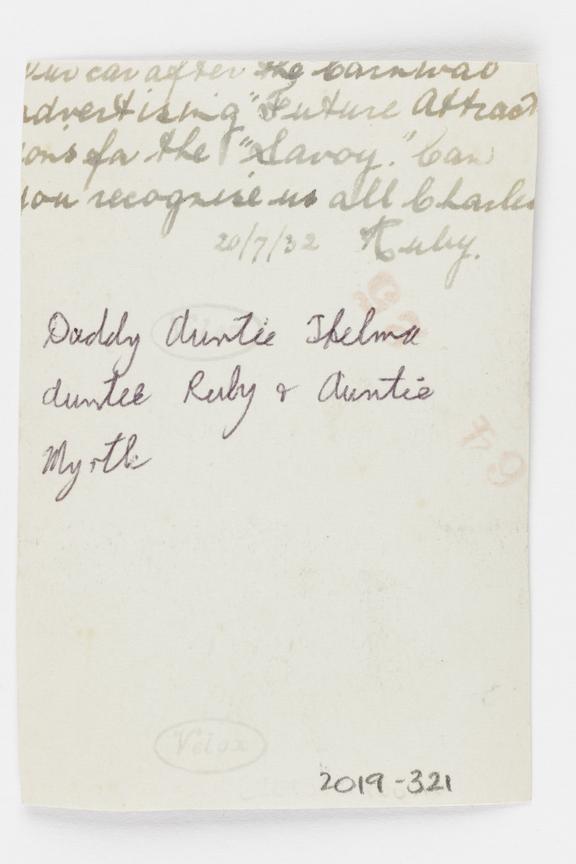 our car after the Carnival
advertising "Future Attract
ions for the "Savoy." Can
you recognise us all Charles
20/7/32 Ruby.
Daddy Auntie Thelma
Auntie Ruby & Auntie
Myrtle
64
Velox
2019-321